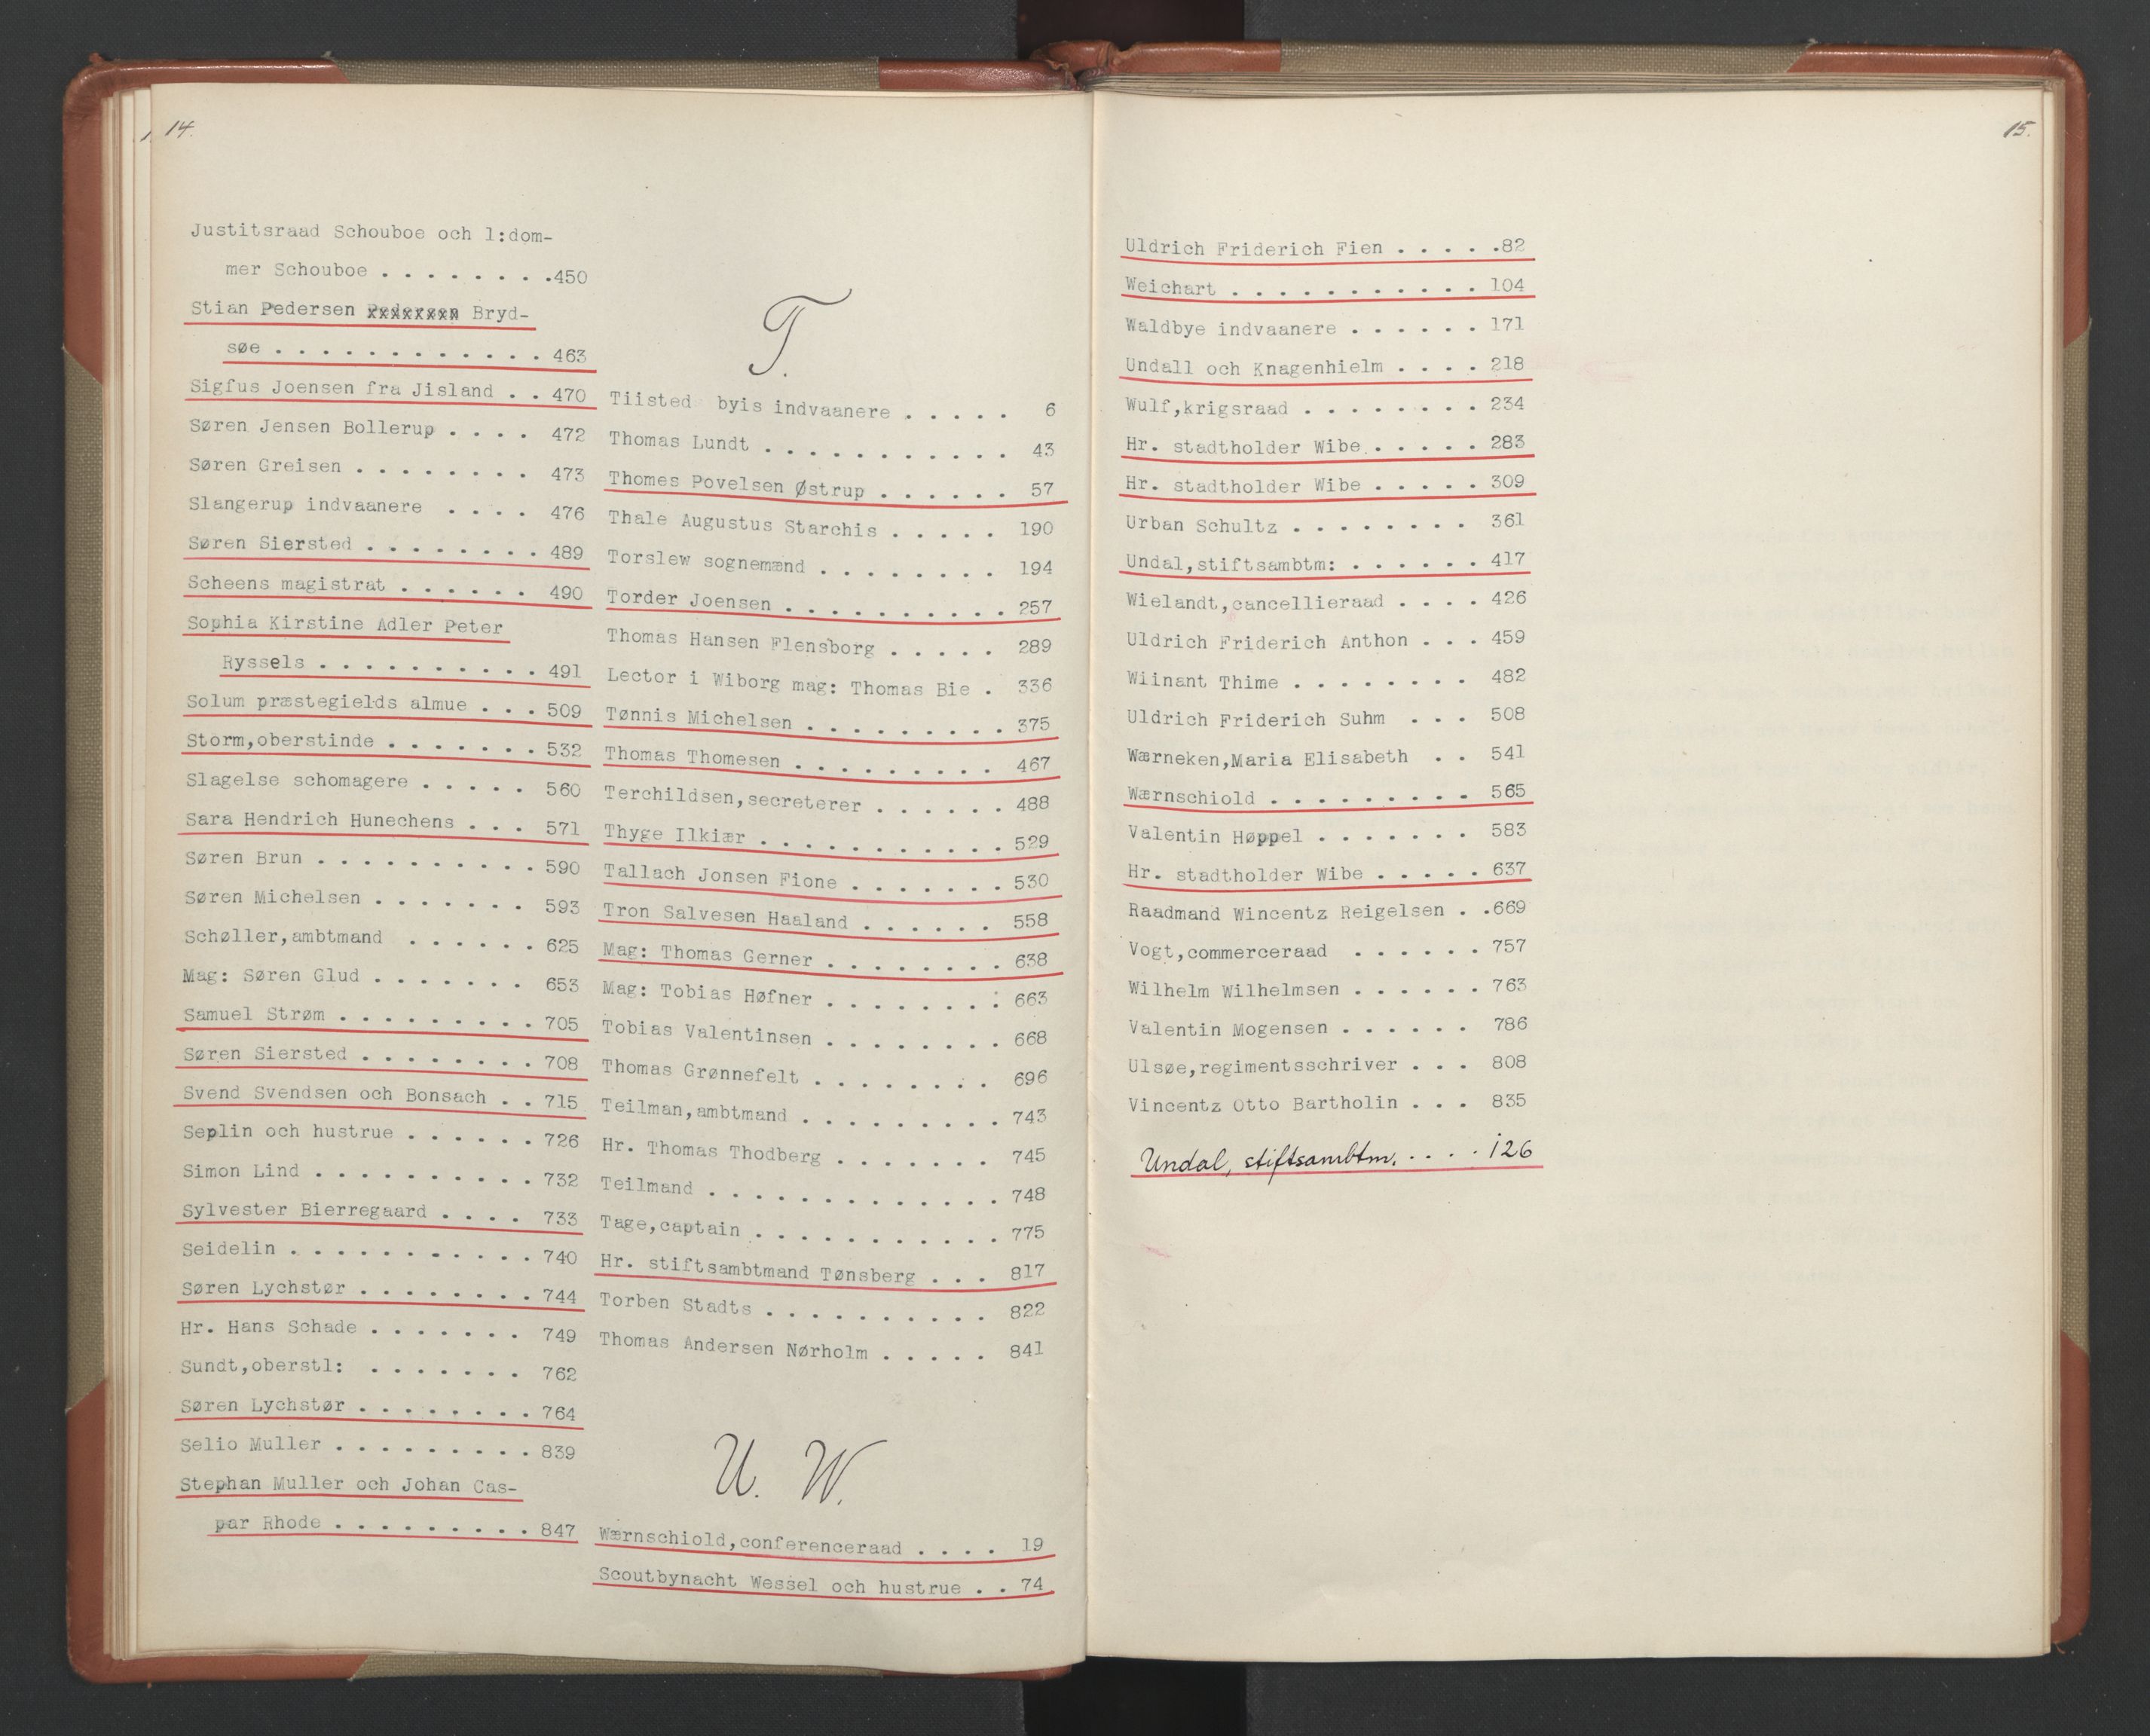 14.
Justitsraad Schouboe och l:dom-
mer Schouboe . . . . . . . .450
Stian Pedersen Bryd-
søe . . . . . . . . . . . . 463
Sigfus Joensen fra Jisland . . 470
Søren Jensen Bollerup . . . . 472
Søren Greisen . . . . . . . . 473
Slangerup indvaanere . . . . 476
Søren Siersted . . . . . . . . 489
Scheens magistrat . . . . . . 490
Sophia Kirstine Adler Peter
Ryssels . . . . . . . . . . 491
Solum præstegields almue . . . 509
Storm,oberstinde . . . . . . . 532
Slagelse schomagere . . . . . 560
Sara Hendrich Hunechens . . . 571
Søren Brun . . . . . . . . . . 590
Søren Michelsen . . . . . . . 593
Schøller,ambtmand . . . . . . 625
Mag: Søren Glud . . . . . . . 653
Samuel Strøm . . . . . . . . . 705
Søren Siersted . . . . . . . . 708
Svend Svendsen och Bonsach . . 715
Seplin och hustrue . . . . . . 726
Simon Lind . . . . . . . . . . 732
Sylvester Bierregaard . . . . 733
Seidelin . . . . . . . . . . . 740
Søren Lychstør . . . . . . . . 744
Hr. Hans Schade . . . . . . . 749
Sundt,oberstl: . . . . . . . 762
Søren Lychstør . . . . . . . . 764
Selio Muller . . . . . . . . . 839
Stephan Muller och Johan Cas-
par Rhode . . . . . . . . . 847
T.
Tiisted byis indvaanere . . . . . 6
Thomas Lundt . . . . . . . . . . . 43
Thomes Povelsen Østrup . . . . . . 57
Thale Augustus Starchis . . . . . 190
Torslew sognemænd . . . . . . . . 194
Torder Joensen . . . . . . . . . . 257
Thomas Hansen Flensborg . . . . . 289
Lector i Wiborg mag: Thomas Bie . 336
Tønnis Michelsen . . . . . . . . . 375
Thomas Thomesen . . . . . . . . . 467
Terchildsen,secreterer . . . . . . 488
Thyge Ilkiær . . . . . . . . . . . 529
Tallach Jonsen Fione . . . . . . . 530
Tron Salvesen Haaland . . . . . . 558
Mag: Thomas Gerner . . . . . . . . 638
Mag: Tobias Høfner . . . . . . . : 663
Tobias Valentinsen . . . . . . . . 668
Thomas Grønnefelt . . . . . . . . 696
Teilman,ambtmand . . . . . . . . . 743
Hr. Thomas Thodberg . . . . . . . 745
Teilmand . . . . . . . . . . . . . 748
Tage,captain . . . . . . . . . . . 775
Hr. stiftsambtmand Tønsberg . . . 817
Torben Stadts . . . . . . . . . . 822
Thomas Andersen Nørholm . . . . . 841
U. W.
Wærnschiold,conferenceraad . . . . 19
Scoutbynacht Wessel och hustrue . . 74
15.
Uldrich Friderich Fien . . . . .82
Weichart . . . . . . . . . . . 104
Waldbye indvaanere . . . . . . 171
Undall och Knagenhielm . . . . 218
Wulf,krigsraad . . . . . . . . 234
Hr. stadtholder Wibe . . . . . 283
Hr. stadtholder Wibe . . . . . 309
Urban Schultz . . . . . . . . 361
Undal,stiftsambtm: . . . . . . 417
Wielandt,cancellieraad . . . . 426
Uldrich Friderich Anthon . . . 459
Wiinant Thime . . . . . . . . 482
Uldrich Friderich Suhm . . . 508
Wærneken,Maria Elisabeth . . 541
Wærnschiold . . . . . . . . . 565
Valentin Høppel . . . . . . . 583
Hr. stadtholder Wibe . . . . . 637
Raadmand Wincentz Reigelsen . .669
Vogt,commerceraad . . . . . . 757
Wilhelm Wilhelmsen . . . . . . 763
Valentin Mogensen . . . . . . 786
Ulsøe,regimentsschriver . . . 808
Vincentz Otto Bartholin . . . 835
Undal, stiftsambtm. . . . . 126